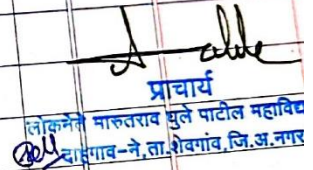 प्राचार्य
लोकनेते मारुतराव घुले पाटील महाविद्य
दाहगाव-ने,ता.शेवगांव,जि.अ.नगर